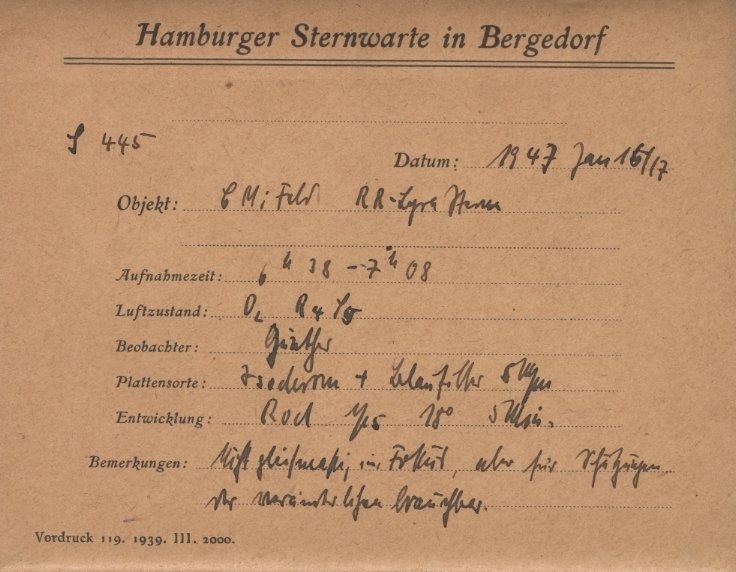 Hamburger Sternwarte in Bergedorf
S 445
Datum: 1947 Jan 16/17
Objekt: C Mi Feld RR-Lyra Sterne
Aufnahmezeit: 6h 38 - 7h 08
Luftzustand: D2 R4 S5
Beobachter: Günther
Plattensorte: Isochrom + Blaufilter
Entwicklung: Rod 1/25 18° 5 Min.
Bemerkungen: Nicht gleichmäßig im Fokus, aber für Schätzungen
der veränderlichen brauchbar.
Vordruck 119. 1939. III. 2000.